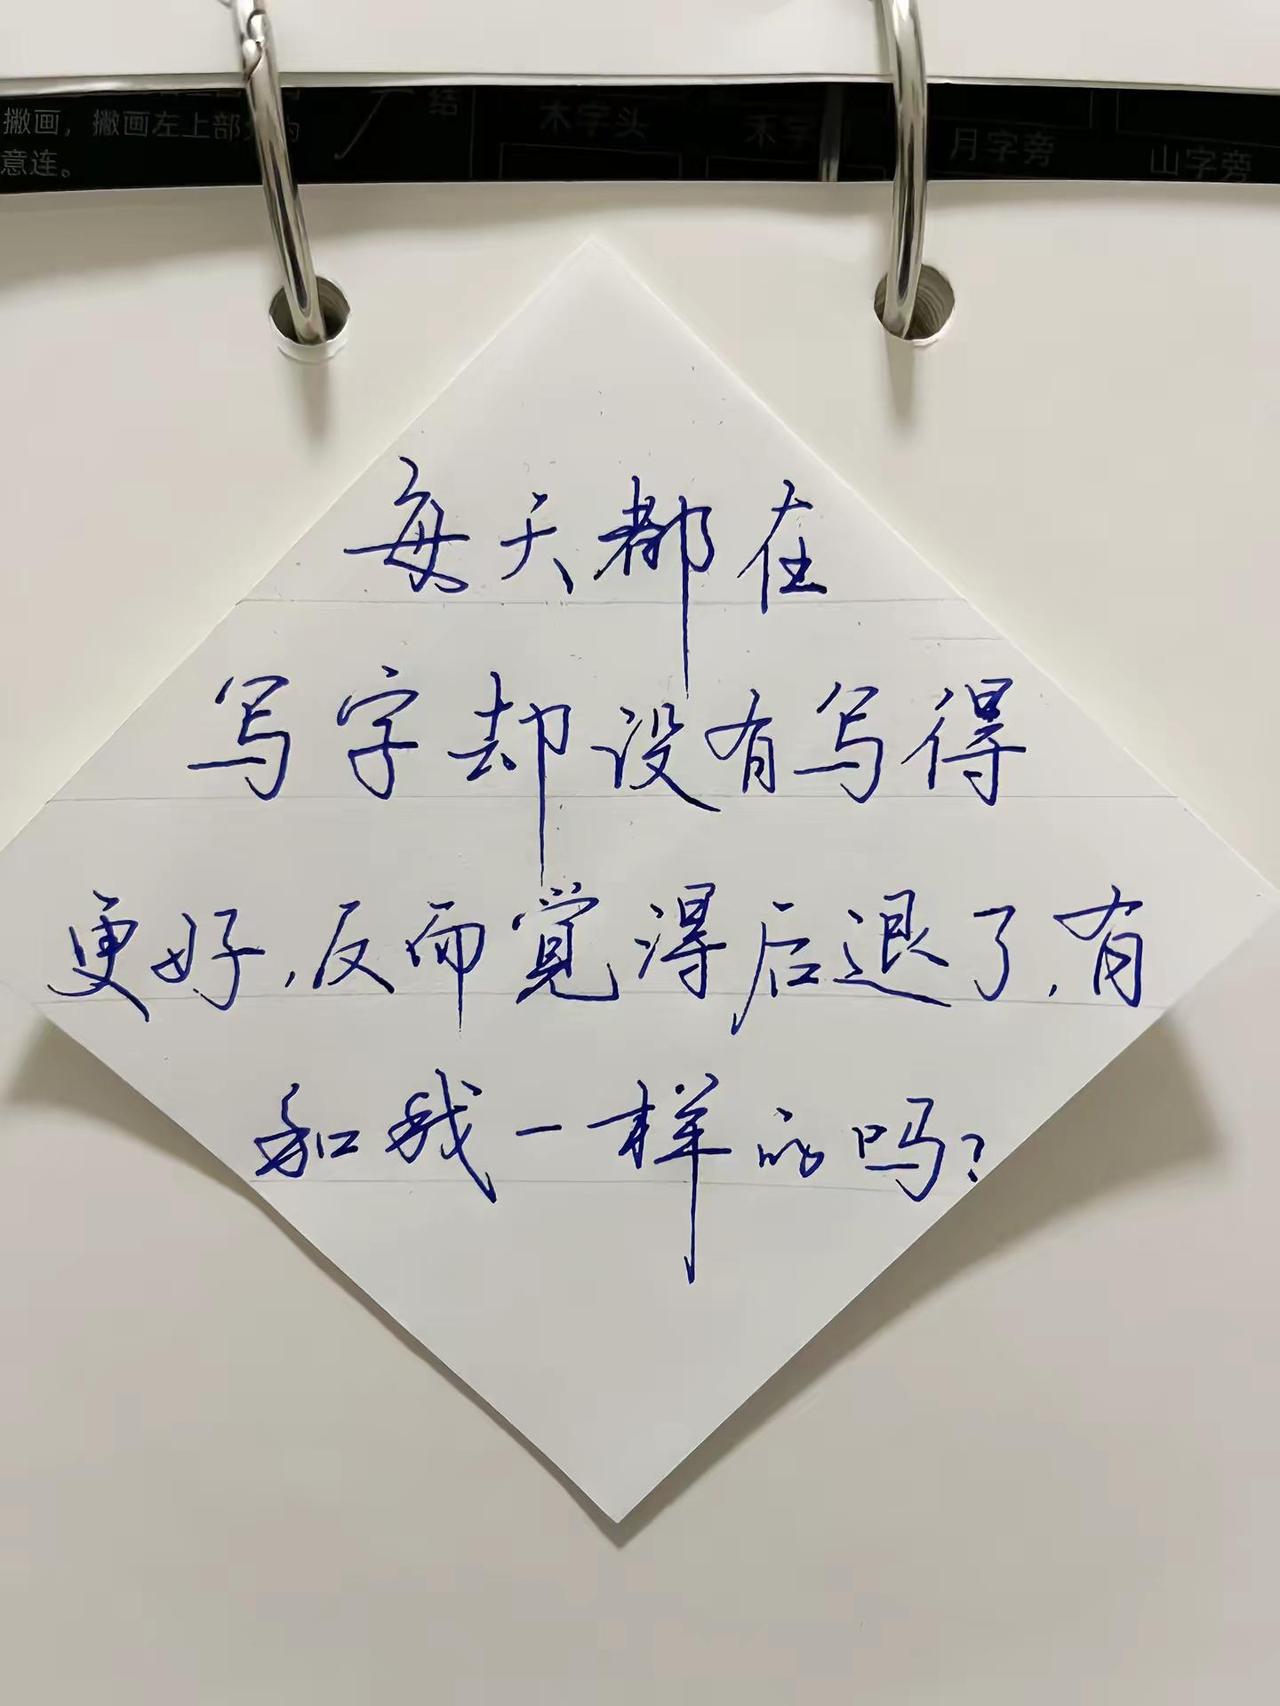 撇画，撇画左上部
结
木字头
禾字
月字旁
山字旁
意连。
每天都在
写字却没有写得
更好,反而觉得后退了,有
和我一样的吗?